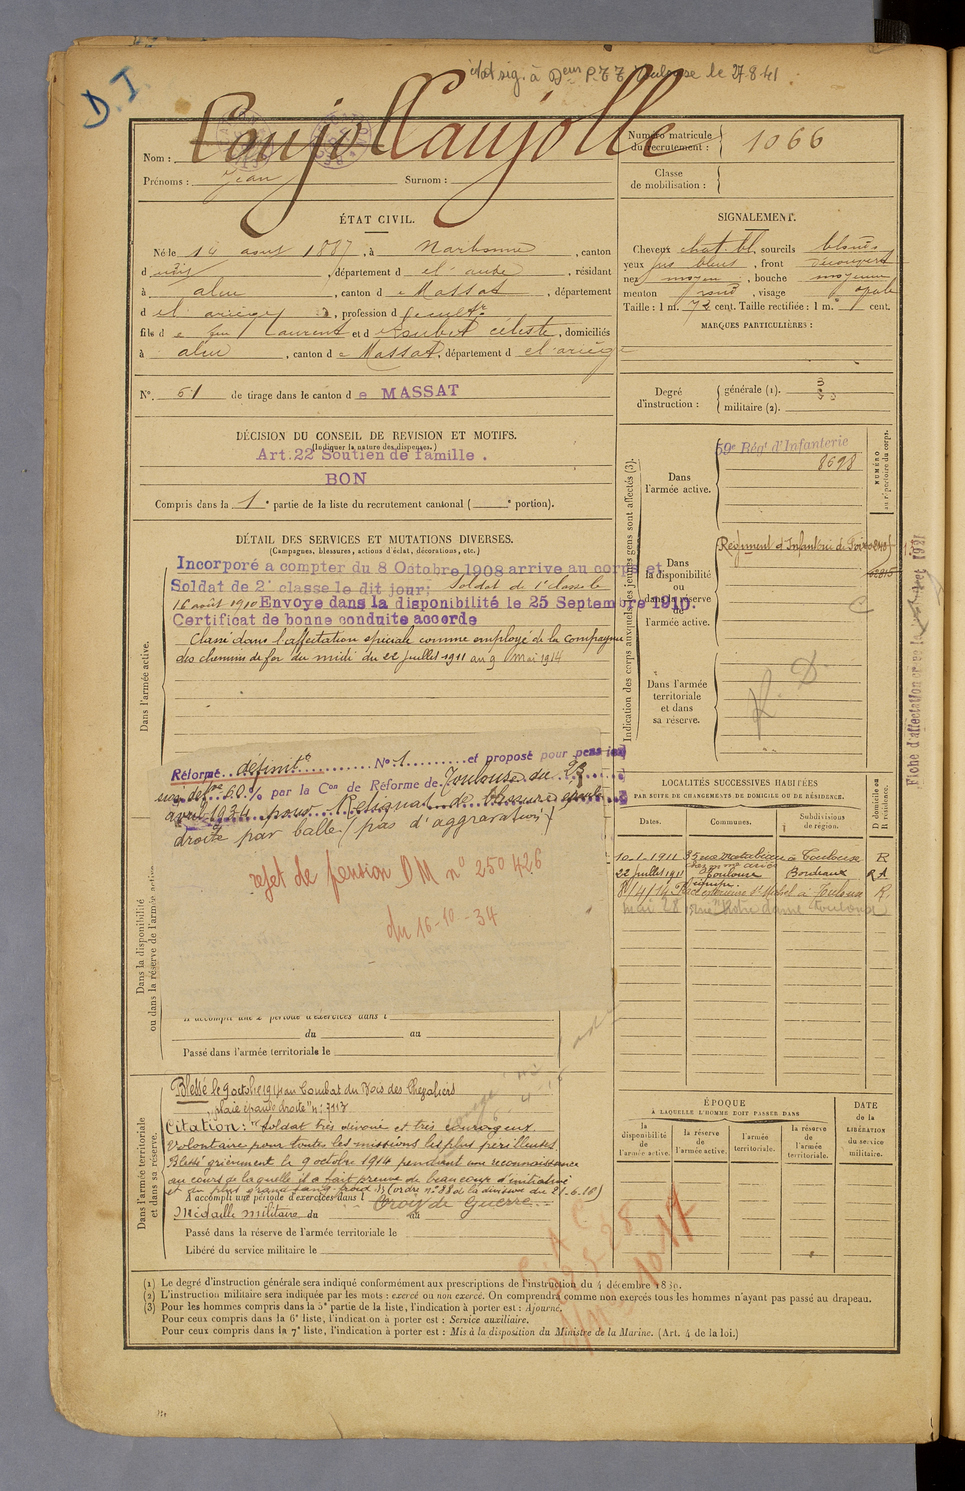 état sig. à Deur P.T.T. Toulouse le 27-8-41
D.I.
Nom : Caujolle
Numéro matricule du recrutement : 1066
Prénoms : Jean Surnom :
Classe de mobilisation :
ÉTAT CIVIL.
Né le 14 aout 1887, à Narbonne, canton
d udit, département d e l'aude, résidant
à aleu, canton d e Massat, département
d e l'ariège, profession d
fils d e feu Laurent et d e Roubet céleste, domiciliés
à aleu, canton d e Massat, département d e l'ariège
SIGNALEMENT.
Cheveux chat. bl, sourcils blonds
yeux gris bleus, front découvert
nez moyen, bouche moyenne
menton rond, visage ovale
Taille : 1 m. 73 cent. Taille rectifiée : 1 m. cent.
MARQUES PARTICULIÈRES :
N° 61 de tirage dans le canton d e MASSAT
Degré d'instruction : générale (1). 3
militaire (2).
DÉCISION DU CONSEIL DE REVISION ET MOTIFS.
(Indiquer la nature des dispenses.)
Art. 22 Soutien de famille.
BON
Compris dans la 1e partie de la liste du recrutement cantonal ( e portion).
DÉTAIL DES SERVICES ET MUTATIONS DIVERSES.
(Campagnes, blessures, actions d'éclat, décorations, etc.)
Dans l'armée active.
Incorporé a compter du 8 Octobre 1908 arrive au corps et
Soldat de 2e classe le dit jour; Soldat de 1e classe le
16 août 1910 Envoye dans la disponibilité le 25 Septembre 1910.
Certificat de bonne conduite accorde
Classé dans l'affectation spéciale comme employé de la Compagnie
des chemins de fer du midi du 22 juillet 1911 au 9 mai 1914
Réformé définitt N° 1 et proposé pour pension
par la Con de Réforme de Toulouse du 23
avril 1934 pour Reliquat de blessure épaule
droite par balle (pas d'aggravation)
rejet de pension DM n° 250 426
du 16-10-34
Dans la disponibilité ou dans la réserve de l'armée active.
A accompli une 2e période d'exercices dans l
du au
Passé dans l'armée territoriale le
Dans l'armée territoriale et dans sa réserve.
Blessé le 9 octobre 1914 au Combat du Bois des Chevaliers
"plaie épaule droite" n° 3117
Citation : "Soldat très dévoué et très courageux.
Volontaire pour toutes les missions les plus périlleuses
Blessé grièvement le 9 octobre 1914 pendant une reconnaissance
au cours de laquelle il a fait preuve de beaucoup d'initiative
et du plus grand sang-froid." (ordre n° 88 de la division du 21-6-16)
A accompli une période d'exercices dans l Croix de Guerre
Médaille militaire du au
Passé dans la réserve de l'armée territoriale le
Libéré du service militaire le
Indication des corps auxquels les jeunes gens sont affectés (3).
NUMÉRO au répertoire du corps.
Dans l'armée active.
59e Régt d'Infanterie
8698
Dans la disponibilité ou dans la réserve de l'armée active.
Régiment d'Infanterie de Foix
Dans l'armée territoriale et dans sa réserve.
R. D
Fiche d'affectation
LOCALITÉS SUCCESSIVES HABITÉES
PAR SUITE DE CHANGEMENTS DE DOMICILE OU DE RÉSIDENCE.
Dates. Communes. Subdivisions de région. D domicile ou R résidence.
10-1-1911 35 rue Matabiau à Toulouse R
22 juillet 1911 Toulouse Bordeaux RA
St Michel à Toulouse R
mai 28 rue Notre dame Toulouse
ÉPOQUE
À LAQUELLE L'HOMME DOIT PASSER DANS
la disponibilité de l'armée active.
la réserve de l'armée active.
l'armée territoriale.
la réserve de l'armée territoriale.
DATE de la LIBÉRATION du service militaire.
(1) Le degré d'instruction générale sera indiqué conformément aux prescriptions de l'instruction du 4 décembre 1889.
(2) L'instruction militaire sera indiquée par les mots : exercé ou non exercé. On comprendra comme non exercés tous les hommes n'ayant pas passé au drapeau.
(3) Pour les hommes compris dans la 5e partie de la liste, l'indication à porter est : Ajourné.
Pour ceux compris dans la 6e liste, l'indication à porter est : Service auxiliaire.
Pour ceux compris dans la 7e liste, l'indication à porter est : Mis à la disposition du Ministre de la Marine. (Art. 4 de la loi.)